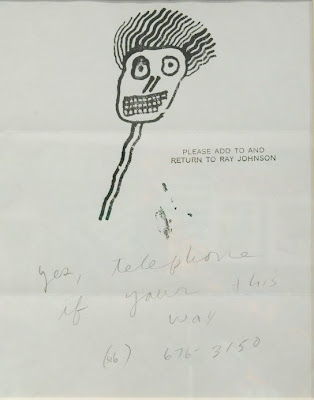 PLEASE ADD TO AND
RETURN TO RAY JOHNSON
yes, telephone
if your this
way
676-3150